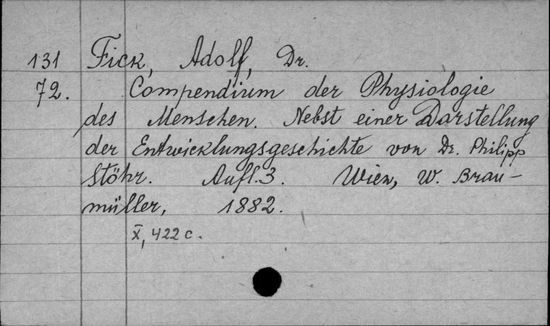 131 Fick, Adolf, Dr.
72. Compendium der Physiologie
des Menschen. Nebst einer Darstellung
der Entwicklungsgeschichte von Dr. Philipp
Stöhr. Aufl. 3. Wien, W. Brau-
müller, 1882.
X, 422 c.